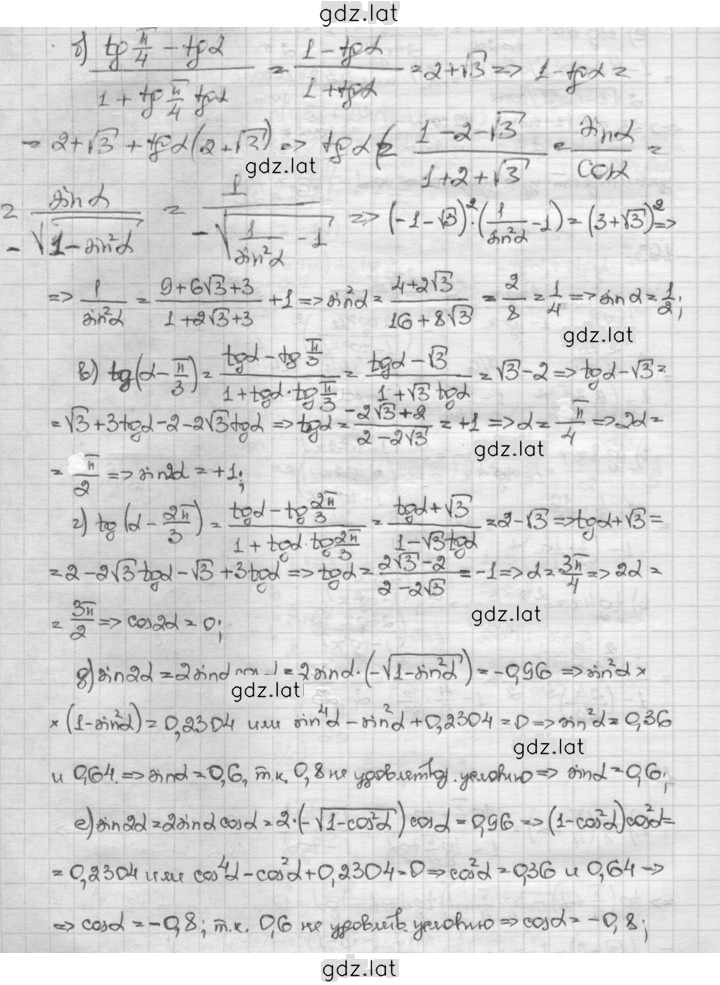 gdz.lat
б) (tg π/4 − tgα)/(1 + tg π/4 tgα) = (1 − tgα)/(1 + tgα) = 2+√3 => 1 − tgα =
= 2+√3 + tgα(2+√3) => tgα = (1−2−√3)/(1+2+√3) = sinα/cosα =
gdz.lat
= sinα/(−√(1−sin²α)) = 1/(−√(1/sin²α − 1)) => (−1−√3)²·(1/sin²α − 1) = (3+√3)² =>
=> 1/sin²α = (9+6√3+3)/(1+2√3+3) + 1 => sin²α = (4+2√3)/(16+8√3) = 2/8 = 1/4 => sinα = 1/2;
gdz.lat
в) tg(α − π/3) = (tgα − tg π/3)/(1 + tgα·tg π/3) = (tgα − √3)/(1 + √3 tgα) = √3 − 2 => tgα − √3 =
= √3 + 3tgα − 2 − 2√3tgα => tgα = (−2√3+2)/(2−2√3) = +1 => α = π/4 => 2α =
gdz.lat
= π/2 => sin2α = +1;
г) tg(α − 2π/3) = (tgα − tg 2π/3)/(1 + tgα·tg 2π/3) = (tgα + √3)/(1 − √3tgα) = 2−√3 => tgα + √3 =
= 2 − 2√3tgα − √3 + 3tgα => tgα = (2√3−2)/(2−2√3) = −1 => α = 3π/4 => 2α =
gdz.lat
= 3π/2 => cos2α = 0;
д) sin2α = 2sinα cosα = 2sinα·(−√(1−sin²α)) = −0,96 => sin²α ×
gdz.lat
× (1−sin²α) = 0,2304 или sin⁴α − sin²α + 0,2304 = 0 => sin²α = 0,36
gdz.lat
и 0,64 => sinα = 0,6, т.к. 0,8 не удовлетв. условию => sinα = 0,6;
е) sin2α = 2sinα cosα = 2·(−√(1−cos²α)) cosα = 0,96 => (1−cos²α)cos²α =
= 0,2304 или cos⁴α − cos²α + 0,2304 = 0 => cos²α = 0,36 и 0,64 =>
=> cosα = −0,8; т.к. 0,6 не удовлетв. условию => cosα = −0,8;
gdz.lat